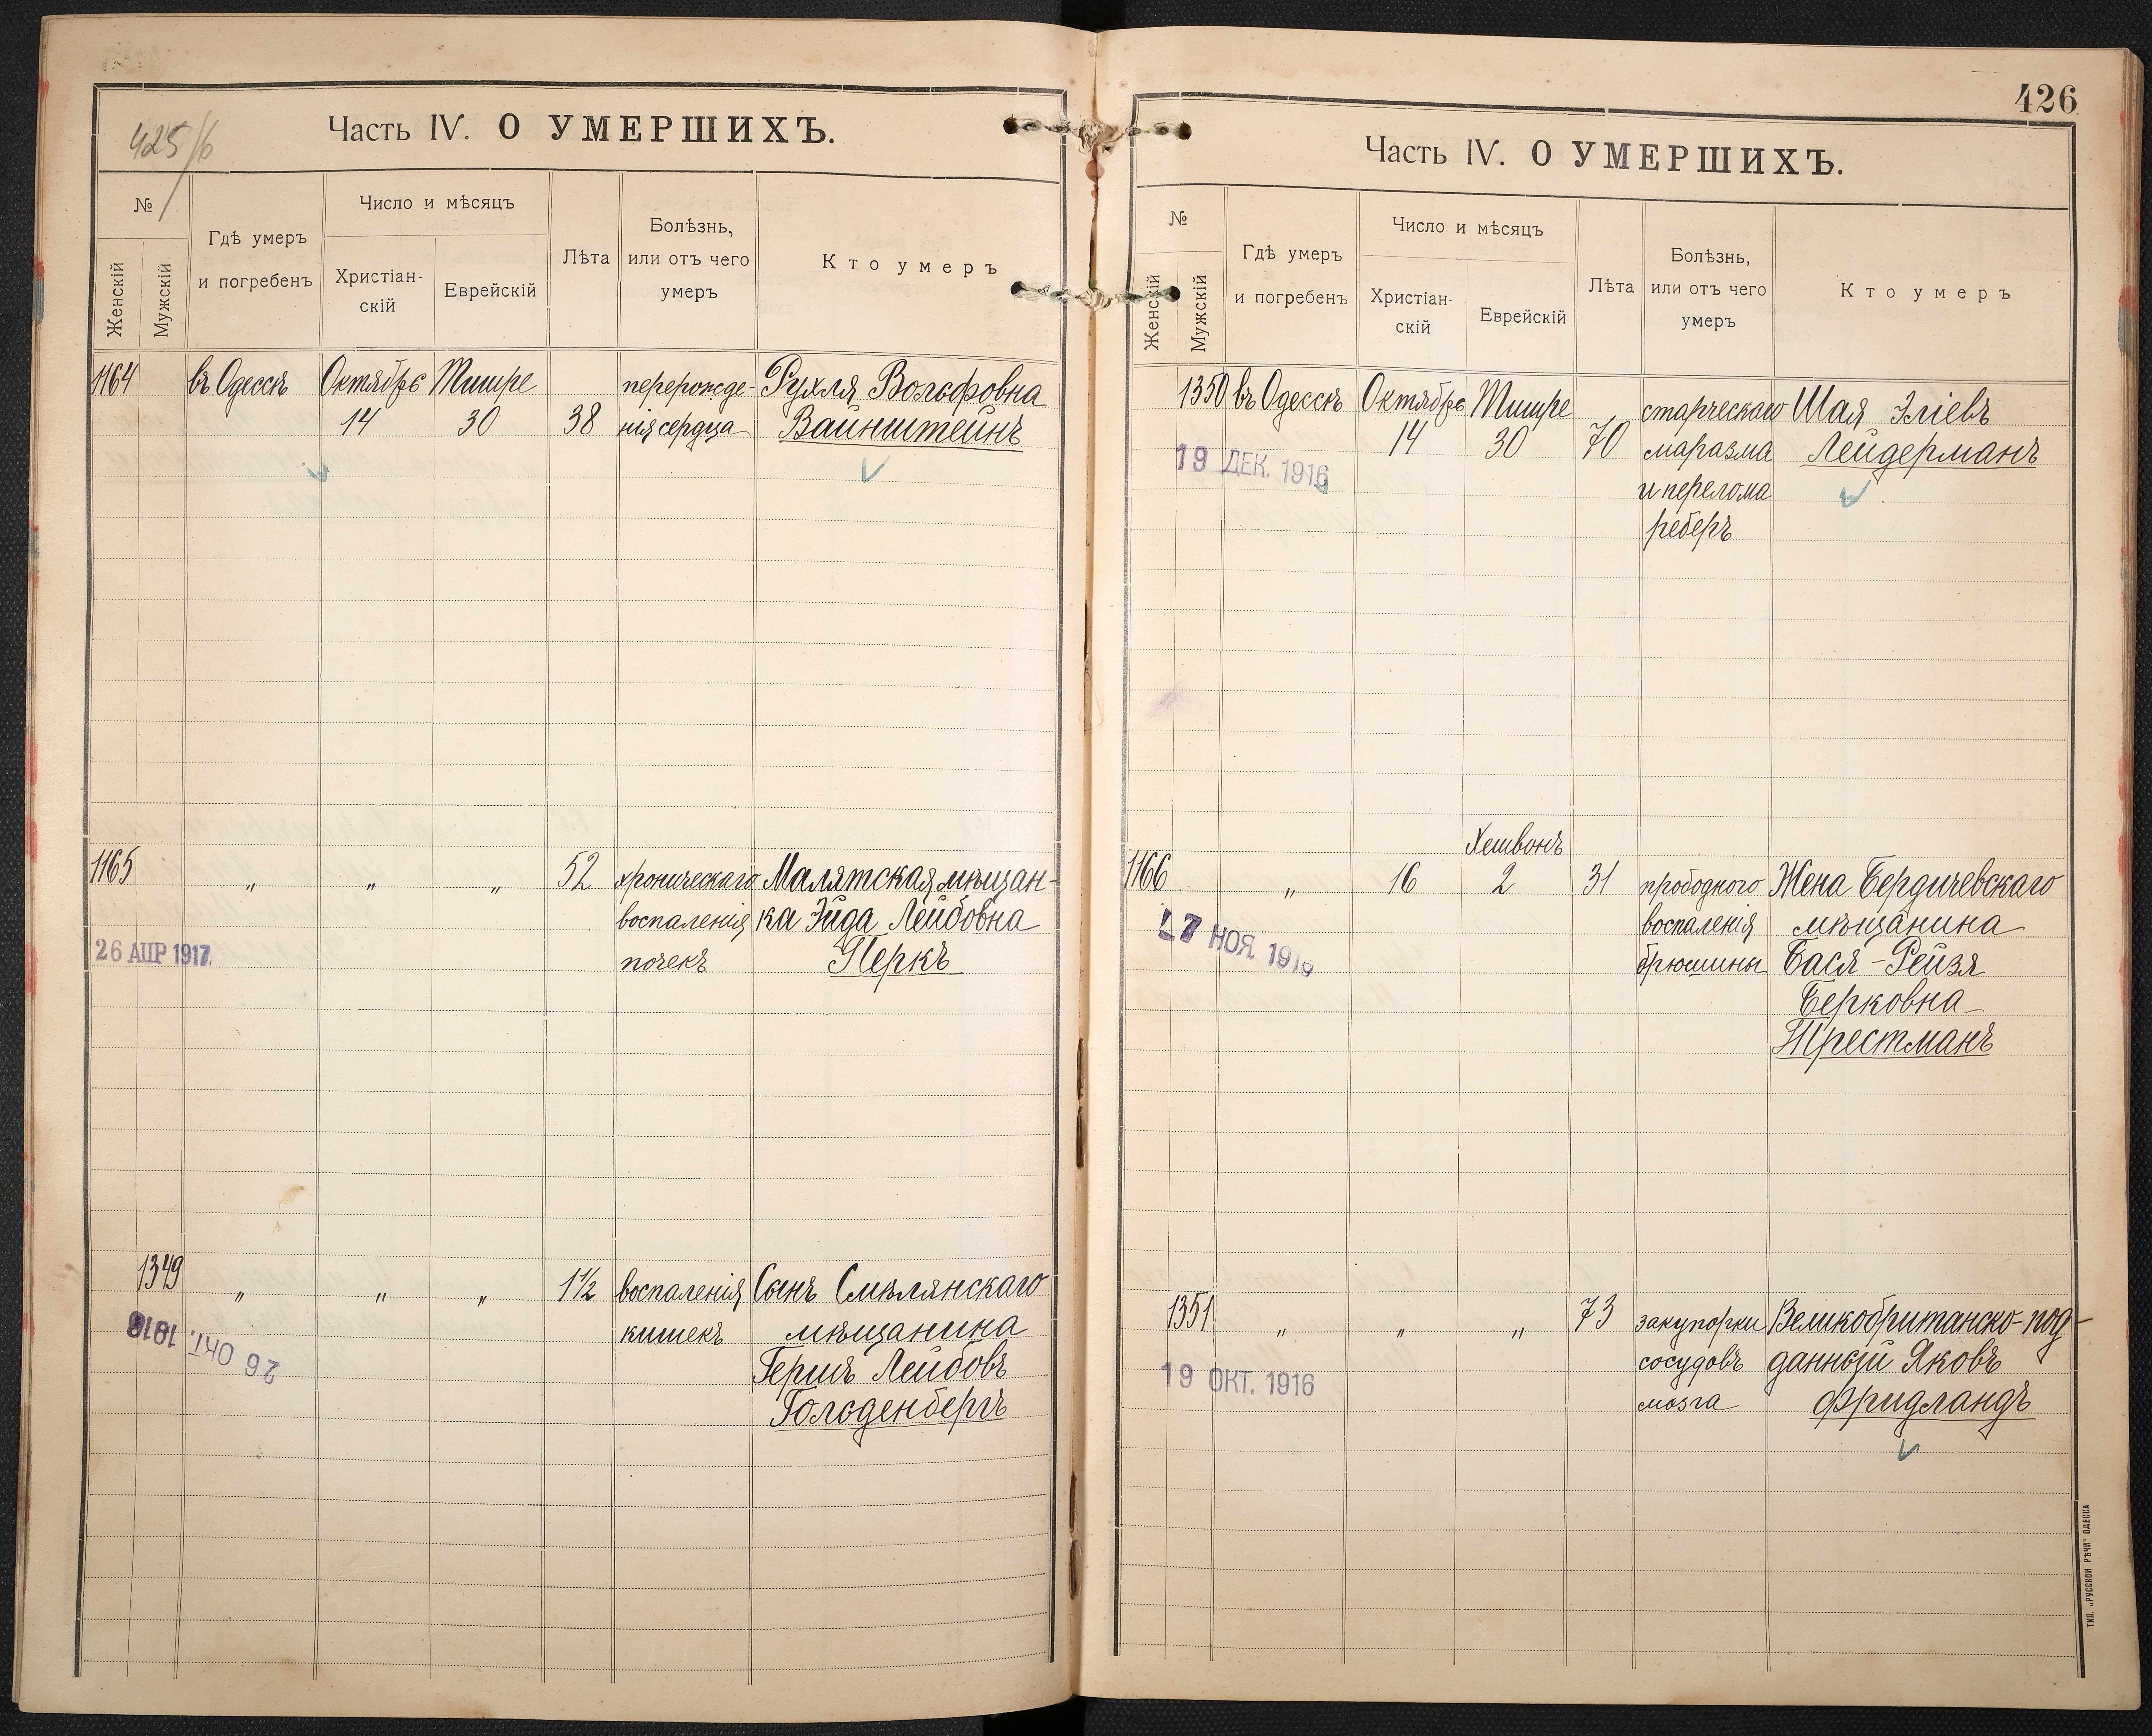 425/б
Часть IV. О УМЕРШИХЪ.
№
Женскій
Мужскій
Гдѣ умеръ
и погребенъ
Число и мѣсяцъ
Христіан-
скій
Еврейскій
Лѣта
Болѣзнь,
или отъ чего
умеръ
Кто умеръ
1164 въ Одессѣ Октябрь Тишре перерожде- Рухля Вольфовна
14 30 38 нія сердца Вайнштейнъ
1165 „ „ „ 52 хроническаго Малятская мѣщан-
воспаленія ка Эйда Лейбовна
26 АПР 1917. почекъ Перкъ
1349 „ „ „ 1½ воспаленія Сынъ Смѣлянскаго
кишекъ мѣщанина
26 ОКТ. 1916 Гершъ Лейбовъ
Гольденбергъ
426
Часть IV. О УМЕРШИХЪ.
№
Женскій
Мужскій
Гдѣ умеръ
и погребенъ
Число и мѣсяцъ
Христіан-
скій
Еврейскій
Лѣта
Болѣзнь,
или отъ чего
умеръ
Кто умеръ
1350 въ Одессѣ Октябрь Тишре старческаго Шая Эліевъ
14 30 70 маразма Лейдерманъ
19 ДЕК. 1916 и перелома
реберъ
Хешвонъ
1166 „ 16 2 31 прободного Жена Бердичевскаго
воспаленія мѣщанина
НОЯ. брюшины Бася-Рейзя
Берковна
Трестманъ
1351 „ „ „ 73 закупорки Великобританско-под-
сосудовъ данный Яковъ
19 ОКТ. 1916 мозга Фридландъ
ТИП. „РУССКОЙ РѢЧИ" ОДЕССА